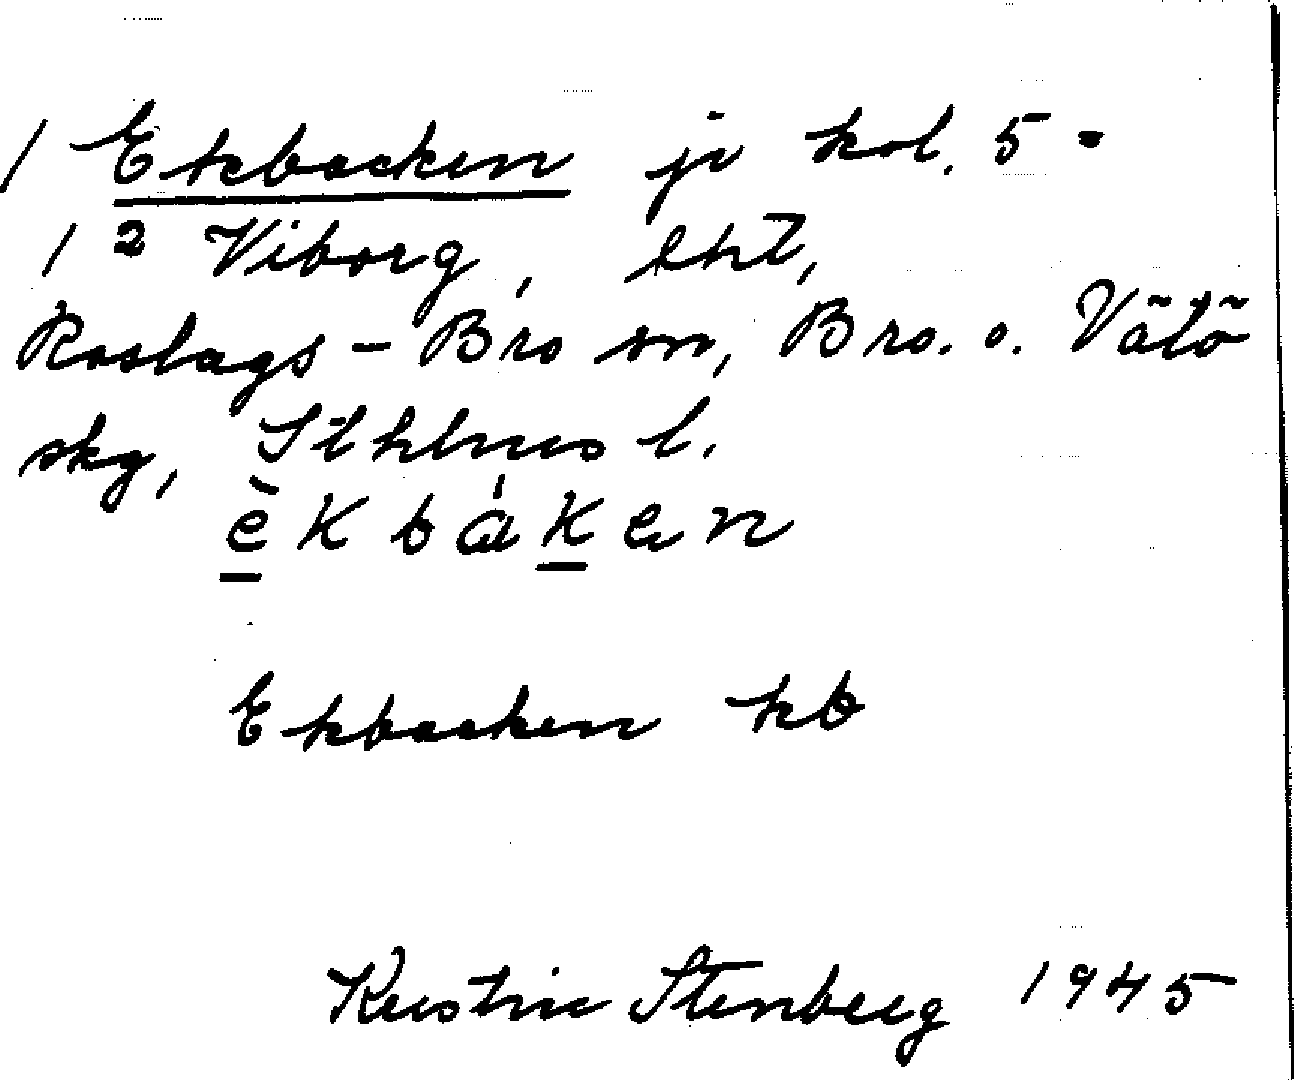 1 Ekbacken ji kol. 5 -
1² Viborg, ent,
Roslags-Bro sn, Bro. o. Vätö
skg, Sthlms l.
èkbák̲en
Ekbacken kb
Kerstin Stenberg 1945